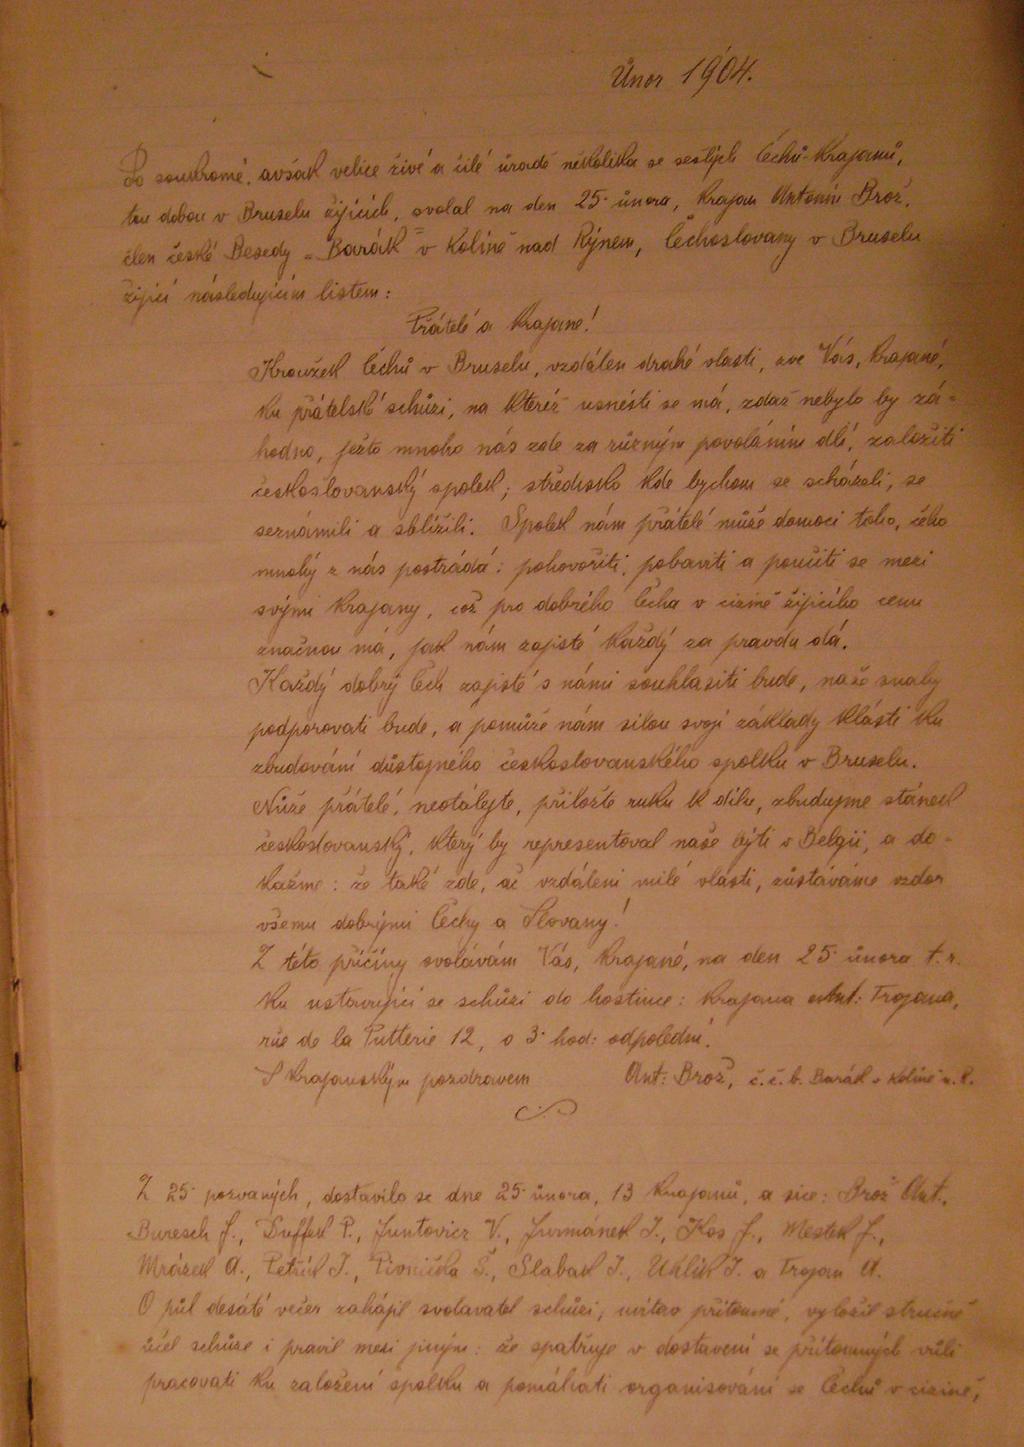 Únor 1904.
Po soukromé, avšak velice živé a čilé úradě několika se sešlých Čechů-Krajanů,
tou dobou v Bruselu žijících, svolal na den 25. února, Krajan Antonín Brož,
člen české Besedy "Barák" v Kolíně nad Rýnem, Čechoslovany v Bruselu
žijící následujícím listem:
Přátelé a Krajané!
Kroužek Čechů v Bruselu, vzdálen drahé vlasti, zve Vás, Krajané,
ku přátelské schůzi, na kteréž usnésti se má, zdaž nebylo by zá-
hodno, ježto mnoho nás zde za různým povoláním dlí, založiti
českoslovanský spolek; středisko kde bychom se scházeli, se
seznámili a sblížili. Spolek nám přátelé může domoci toho, čeho
mnohý z nás postrádá: pohovořiti, pobaviti a poučiti se mezi
svými Krajany, což pro dobrého Čecha v cizině žijícího cenu
značnou má, jak nám zajisté Každý za pravdu dá.
Každý dobrý Čech zajisté s námi souhlasiti bude, naše snahy
podporovati bude, a pomůže nám silou svojí základy klásti ku
zbudování důstojného českoslovanského spolku v Bruselu.
Nuže přátelé, neotálejte, přiložte ruku k dílu, zbudujme stánek
českoslovanský, který by representoval naše bytí v Belgii, a do-
kažme: že také zde, ač vzdáleni milé vlasti, zůstáváme vzdor
všemu dobrými Čechy a Slovany!
Z této příčiny svolávám Vás, Krajané, na den 25. února t. r.
ku ustavující se schůzi do hostince: Krajana Ant: Trojana,
rue de la Putterie 12, o 3. hod: odpolední.
S Krajanským pozdravem Ant: Brož, č. č. b. Barák v Kolíně n. R.
Z 25. pozvaných, dostavilo se dne 25. února, 13 Krajanů, a sice: Brož Ant.,
Buresch J., Duffek P., Juntovicz V., Jurmánek J., Kos J., Mestek J.,
Mrázek A., Petřík J., Pivnička Š., Slabak J., Uhlík J. a Trojan A.
O půl desáté večer zahájil svolavatel schůzi, uvítav přítomné, vyložil stručně
účel schůze i pravil mezi jiným: že spatřuje v dostavení se přítomných vůli
pracovati ku založení spolku a pomáhati organisování se Čechů v cizině,